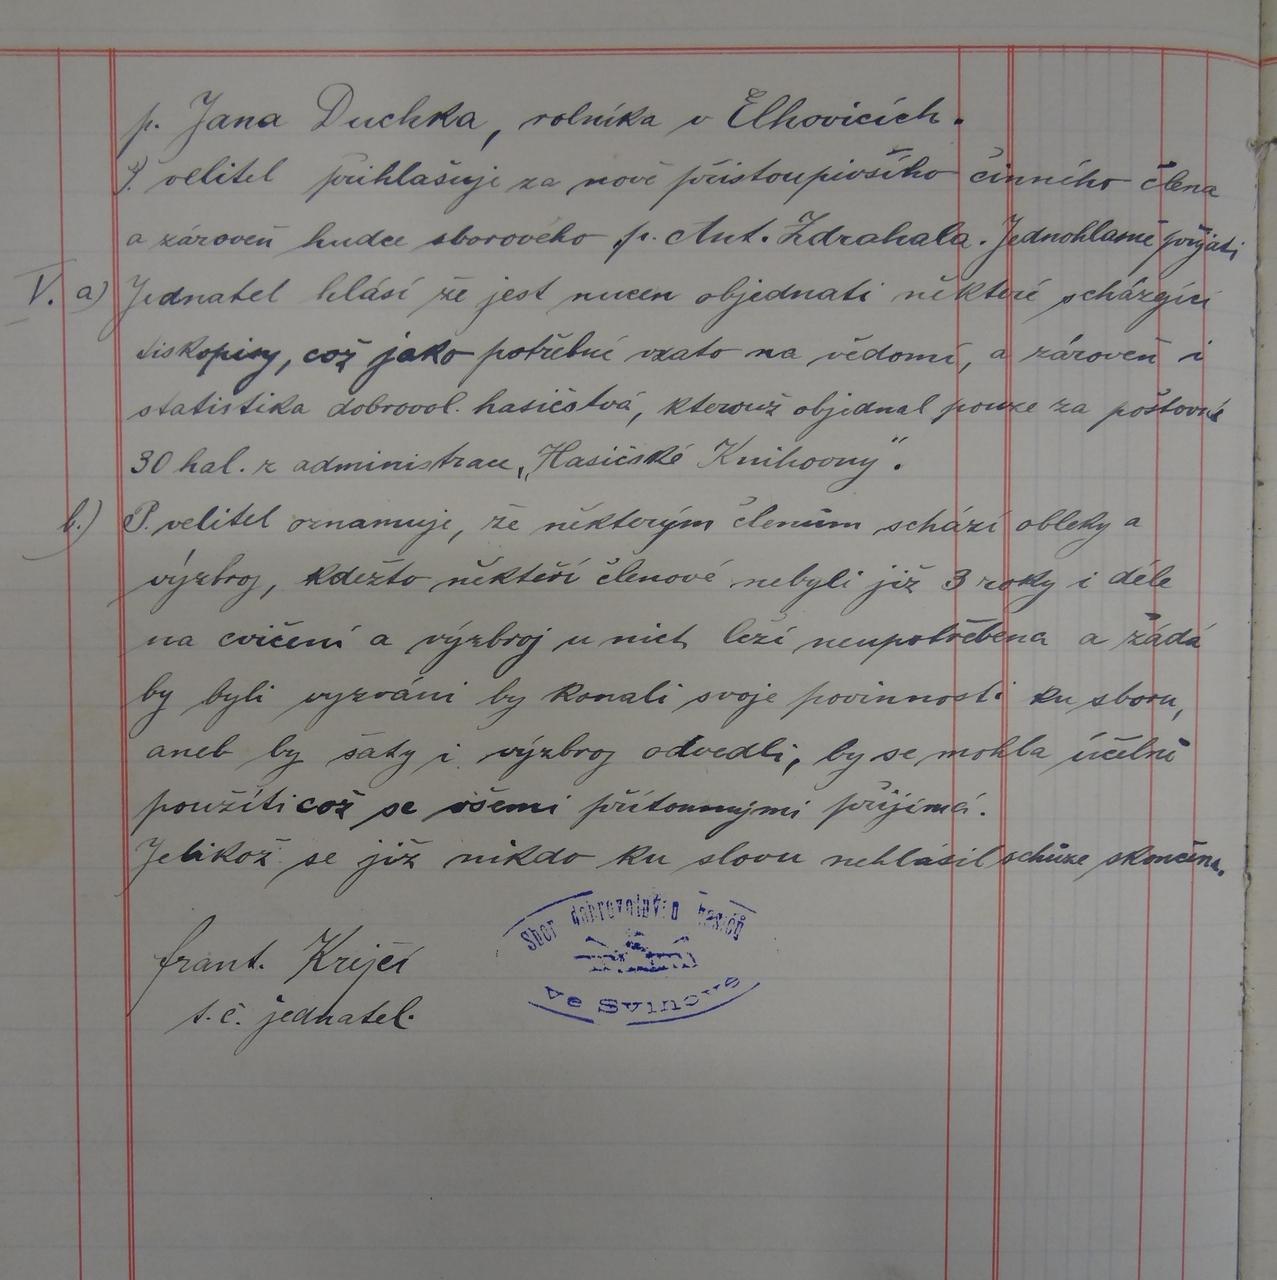 p. Jana Duchka, rolníka v Elhovicích.
P. velitel přihlašuje za nově přistoupivšího činného člena
a zároveň hudce sborového p. Ant. Zdrahala. Jednohlasně přijati
V. a) Jednatel hlásí že jest nucen objednati některé scházející
tiskopisy, což jako potřebné vzato na vědomí, a zároveň i
statistika dobrovol. hasičstva, kterouž objednal pouze za poštovné
30 hal. z administrace „Hasičské Knihovny".
b.) P. velitel oznamuje, že některým členům schází obleky a
výzbroj, kdežto někteří členové nebyli již 3 roky i déle
na cvičení a výzbroj u nich leží neupotřebena a žádá
by byli vyzváni by konali svoje povinnosti ku sboru,
aneb by šaty i výzbroj odvedli, by se mohla účelně
použíti což se všemi přítomnými přijímá.
Jelikož se již nikdo ku slovu nehlásil schůze skončena.
Frant. Krejčí
t.č. jednatel.
Sbor dobrovolných hasičů
ve Svinově